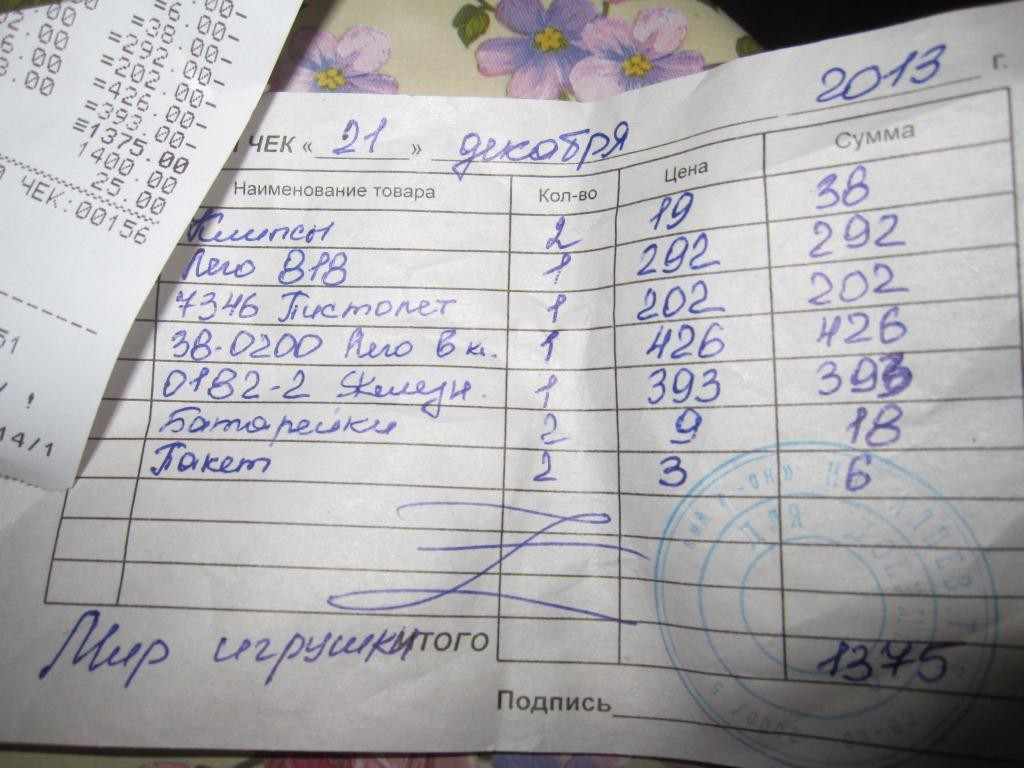 .00
.00
.00
.00
=6.00-
=38.00-
=292.00-
=202.00-
=426.00-
=393.00-
=1375.00
1400.00
25.00
ЧЕК:00156
51
!
14/1
2013 г.
ЧЕК « 21 » декабря
Наименование товара Кол-во Цена Сумма
Клипсы 2 19 38
Лего 818 1 292 292
7346 Пистолет 1 202 202
38-0200 Лего в к. 1 426 426
0182-2 Железн. 1 393 393
Батарейки 2 9 18
Пакет 2 3 6
Мир игрушки ИТОГО 1375
Подпись
ДЛЯ